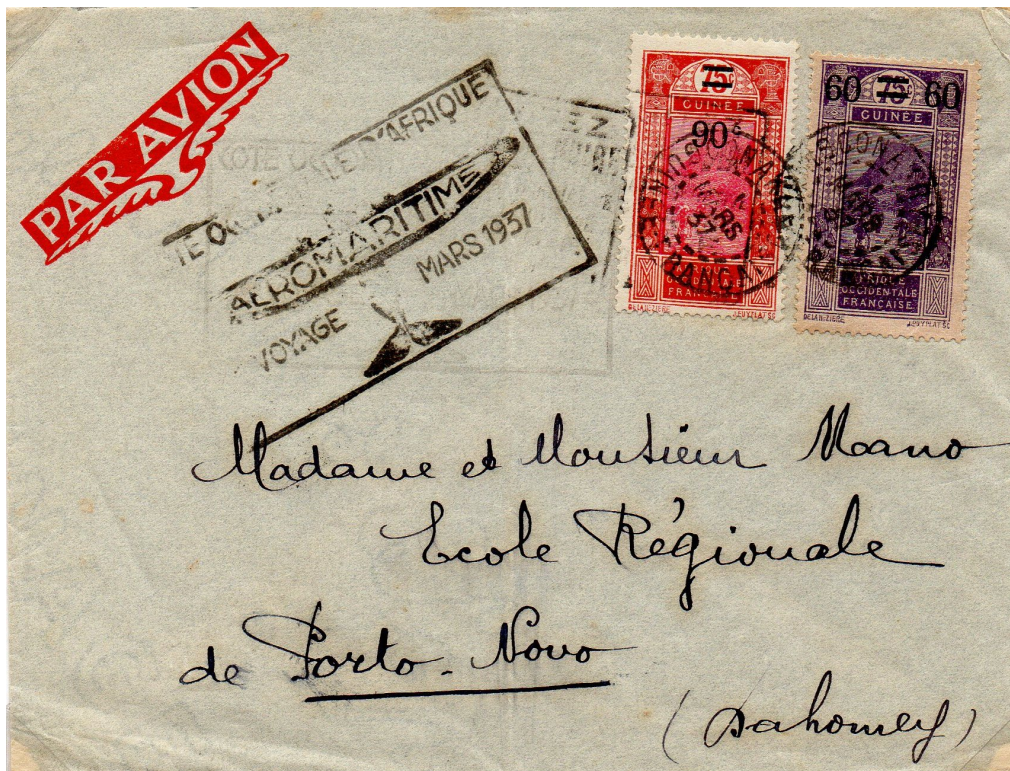 PAR AVION
D'AFRIQUE
AÉROMARITIME
VOYAGE MARS 1937
75c
GUINÉE
90c
OCCIDENTALE
FRANÇAISE
60 75c 60
GUINÉE
AFRIQUE
OCCIDENTALE
FRANÇAISE
MARS
37
Madame et Monsieur Mano
Ecole Régionale
de Porto-Novo
(Dahomey)